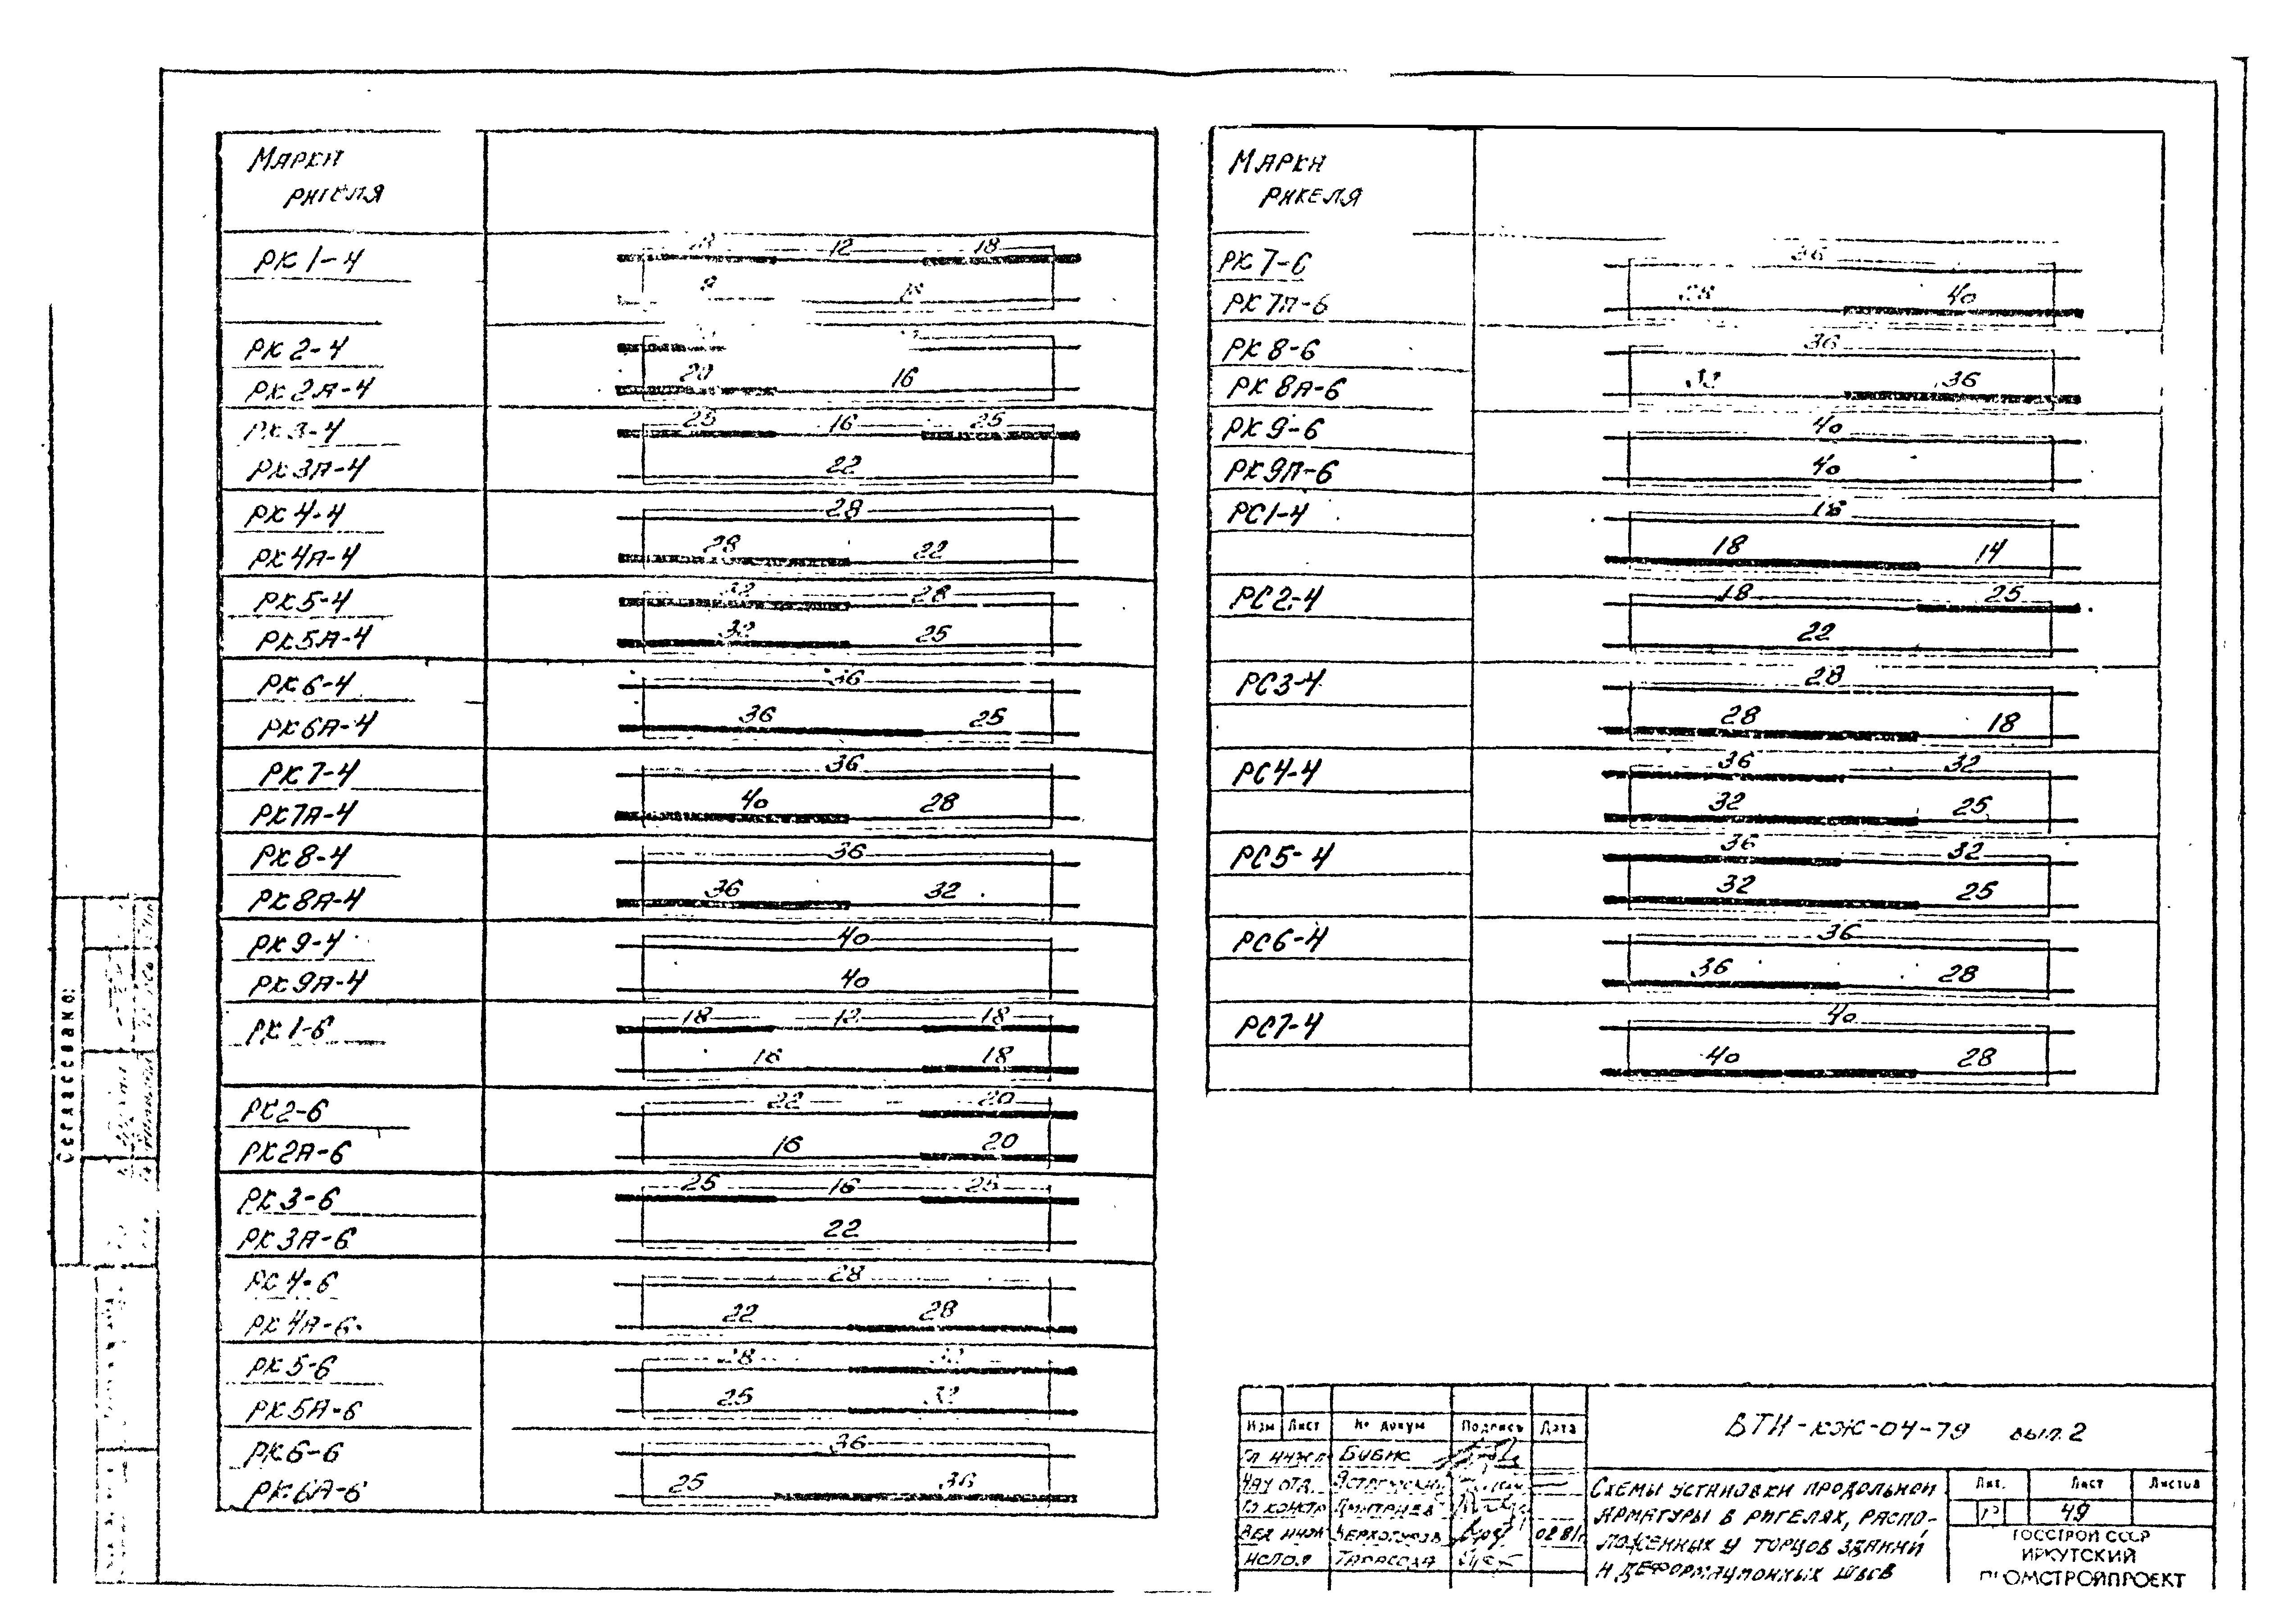 Марка
ригеля
РК1-4
12 18
18
РК2-4
РК2А-4
20 16
РК3-4
25 16 25
РК3А-4
22
РК4-4
28
РК4А-4
28 22
РК5-4
32 28
РК5А-4
32 25
РК6-4
36
РК6А-4
36 25
РК7-4
36
РК7А-4
40 28
РК8-4
36
РК8А-4
36 32
РК9-4
40
РК9А-4
40
РК1-6
18 12 18
16 18
РК2-6
22 20
РК2А-6
16 20
РК3-6
25 16 25
РК3А-6
22
РС4-6
28
РК4А-6
22 28
РК5-6
28 32
РК5А-6
25 32
РК6-6
36
РК6А-6
25 36
Марка
ригеля
РК7-6
36
РК7П-6
28 40
РК8-6
36
РК8А-6
32 36
РК9-6
40
РК9П-6
40
РС1-4
18
18 14
РС2-4
18 25
22
РС3-4
28
28 18
РС4-4
36 32
32 25
РС5-4
36 32
32 25
РС6-4
36
36 28
РС7-4
40
40 28
Согласовано:
Изм Лист № докум Подпись Дата
Гл инж п Бибик
Нач отд.
Гл констр Дмитриев
Вед инж Верхотуров 02 81г
Исполн Тарасова
ВТИ-КЖ-04-79 вып. 2
Схемы установки продольной
арматуры в ригелях, распо-
ложенных у торцов зданий
и деформационных швов
Лит. Лист Листов
Р 49
ГОССТРОЙ СССР
ИРКУТСКИЙ
ПРОМСТРОЙПРОЕКТ